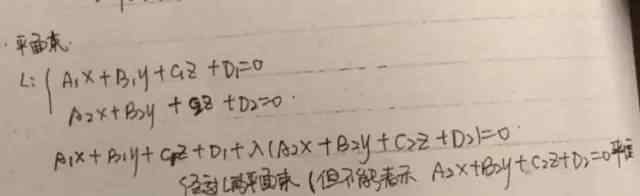 ·平面束.
L: { A₁x+B₁y+C₁z+D₁=0
A₂x+B₂y+C₂z+D₂=0.
A₁x+B₁y+C₁z+D₁+λ(A₂x+B₂y+C₂z+D₂)=0.
经过L的平面束(但不能表示 A₂x+B₂y+C₂z+D₂=0平面